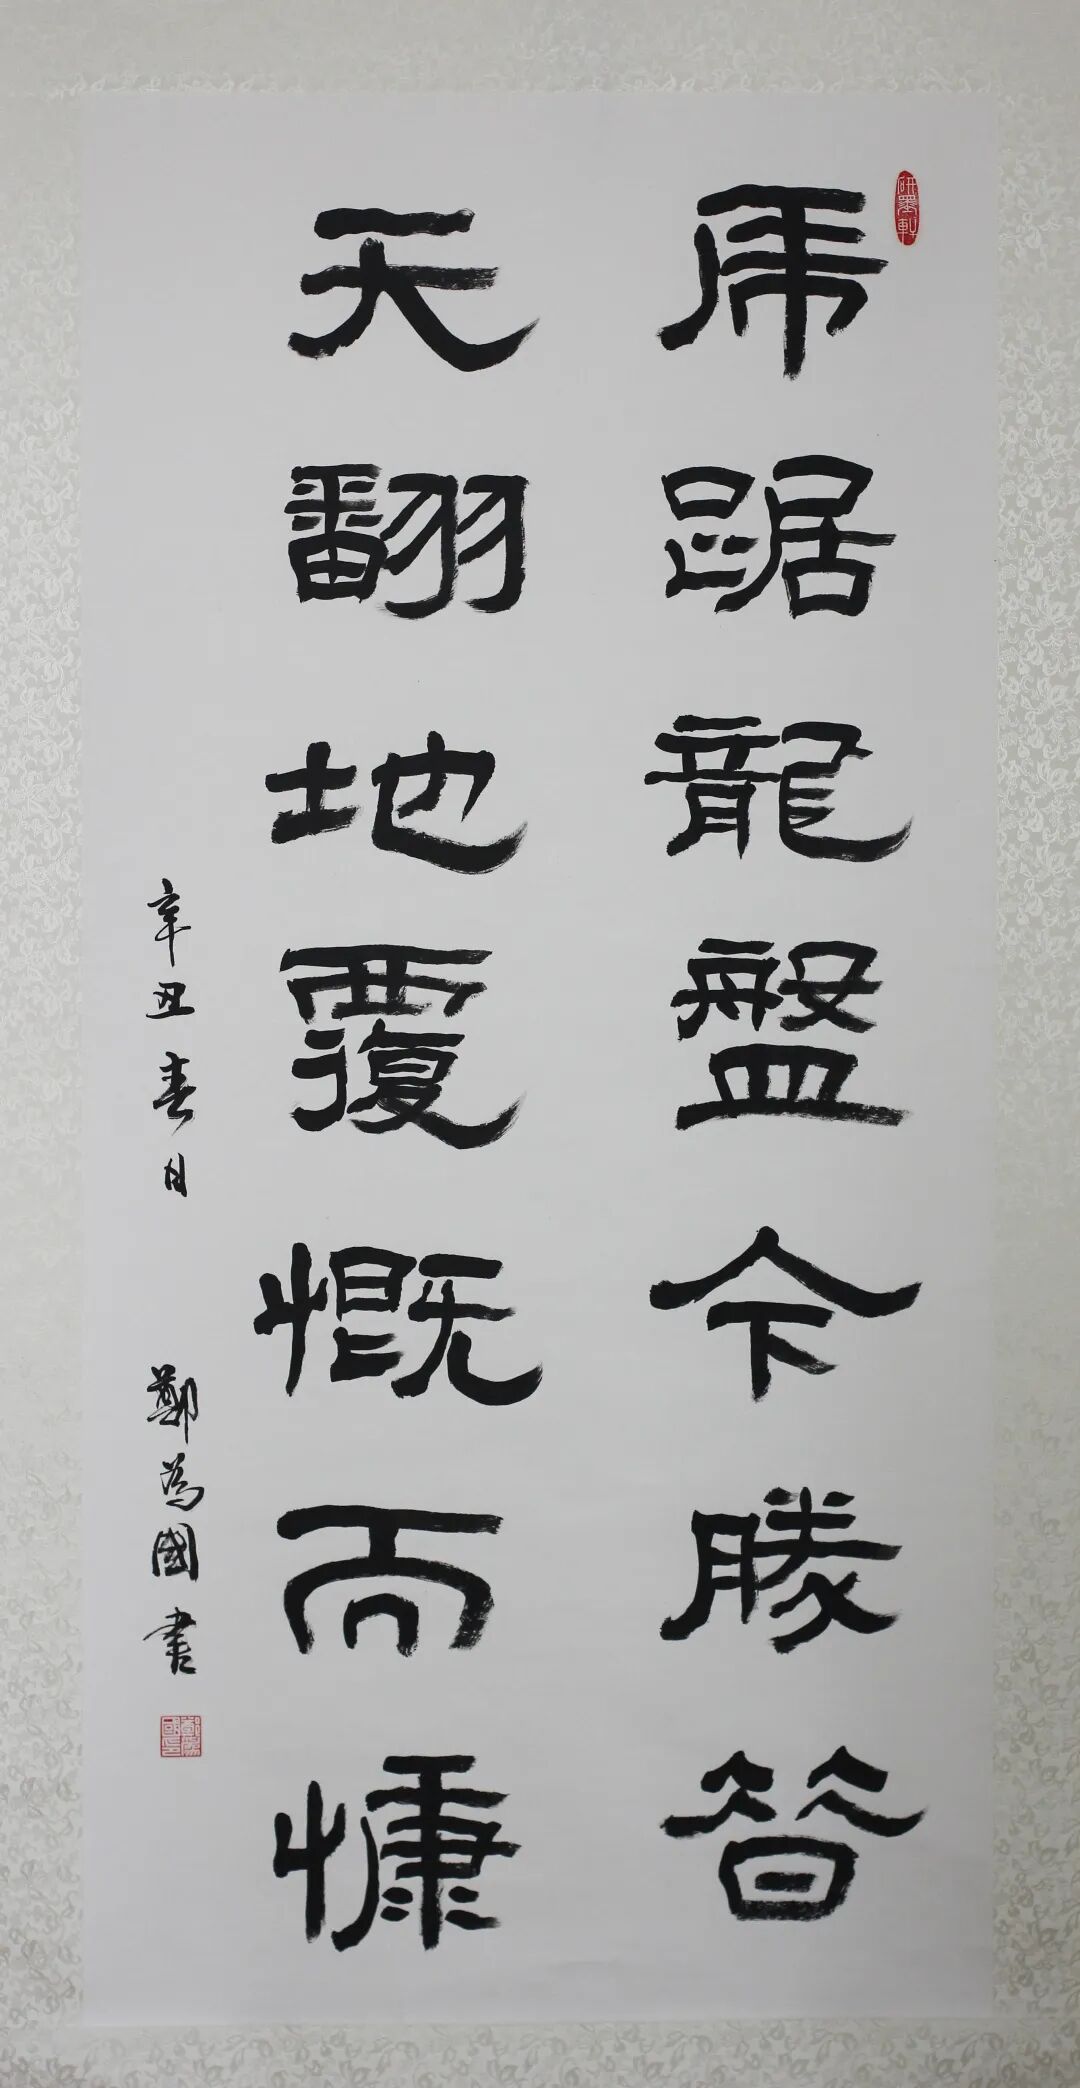 虎踞龍盤今勝昔
天翻地覆慨而慷
辛丑春月 鄭為國書
研墨軒